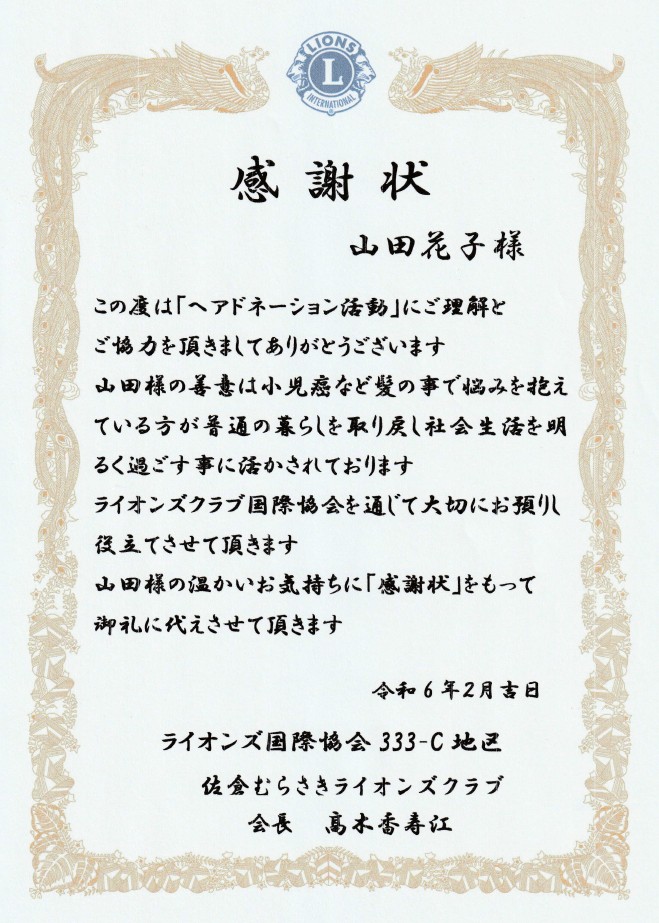 LIONS
L
INTERNATIONAL
感謝状
山田花子様
この度は「ヘアドネーション活動」にご理解と
ご協力を頂きましてありがとうございます
山田様の善意は小児癌など髪の事で悩みを抱え
ている方が普通の暮らしを取り戻し社会生活を明
るく過ごす事に活かされております
ライオンズクラブ国際協会を通じて大切にお預りし
役立てさせて頂きます
山田様の温かいお気持ちに「感謝状」をもって
御礼に代えさせて頂きます
令和6年2月吉日
ライオンズ国際協会 333-C 地区
佐倉むらさきライオンズクラブ
会長 髙木香寿江